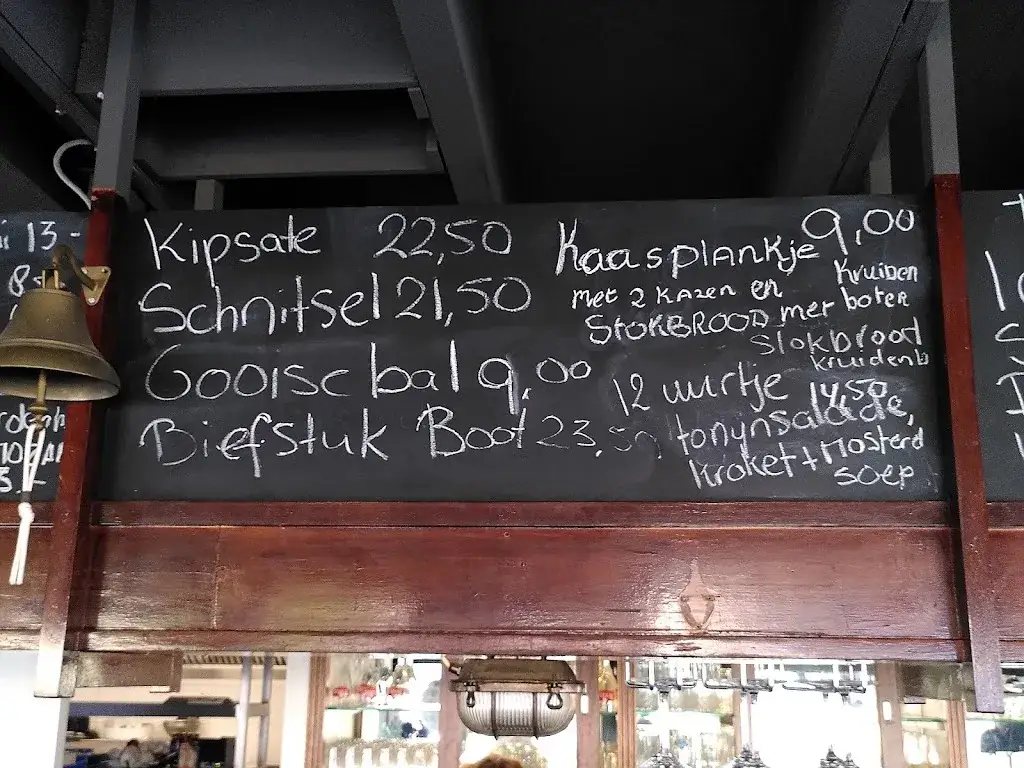 Kipsate 22,50
Schnitsel 21,50
Gooisc bal 9,00
Biefstuk Boot 23,50
Kaasplankje 9,00
met 2 kazen en Kruiden
STOKBROOD met boter
Stokbrood
kruidenb
12 uurtje 14,50
tonynsalade,
kroket + Mosterd
soep
13 -